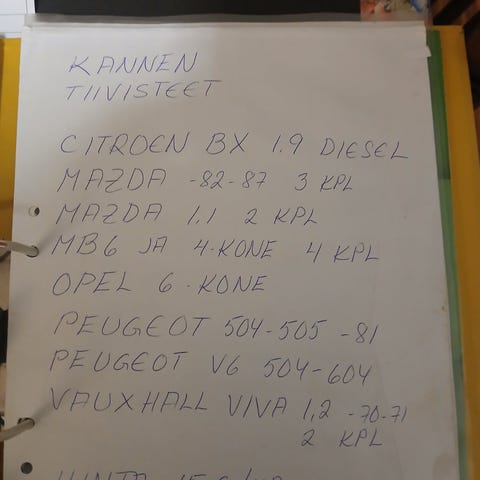 KANNEN
TIIVISTEET
CITROEN BX 1.9 DIESEL
MAZDA -82-87 3 KPL
MAZDA 1.1 2 KPL
MB6 JA 4-KONE 4 KPL
OPEL 6-KONE
PEUGEOT 504-505 -81
PEUGEOT V6 504-604
VAUXHALL VIVA 1,2 -70-71
2 KPL